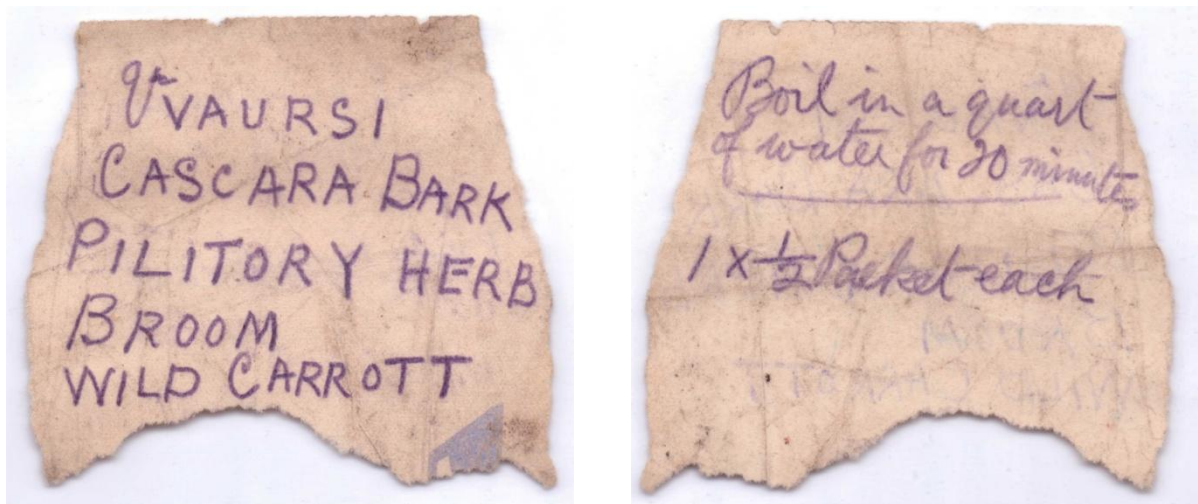 UVAURSI
CASCARA BARK
PILITORY HERB
BROOM
WILD CARROTT
Boil in a quart
of water for 20 minutes
1 x ½ Packet each